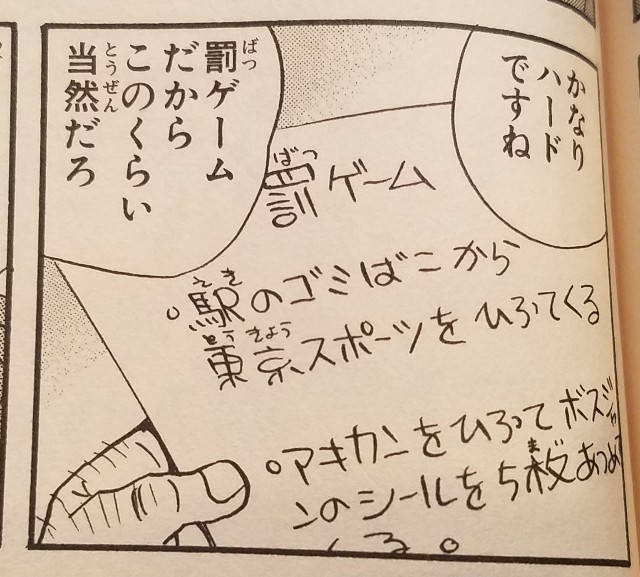 かなり
ハード
ですね
罰ゲーム
○駅のゴミばこから
東京スポーツをひろってくる
○アキカンをひろってボスジャ
ンのシールを5枚あつめて
くる。
罰ゲーム
だから
このくらい
当然だろ